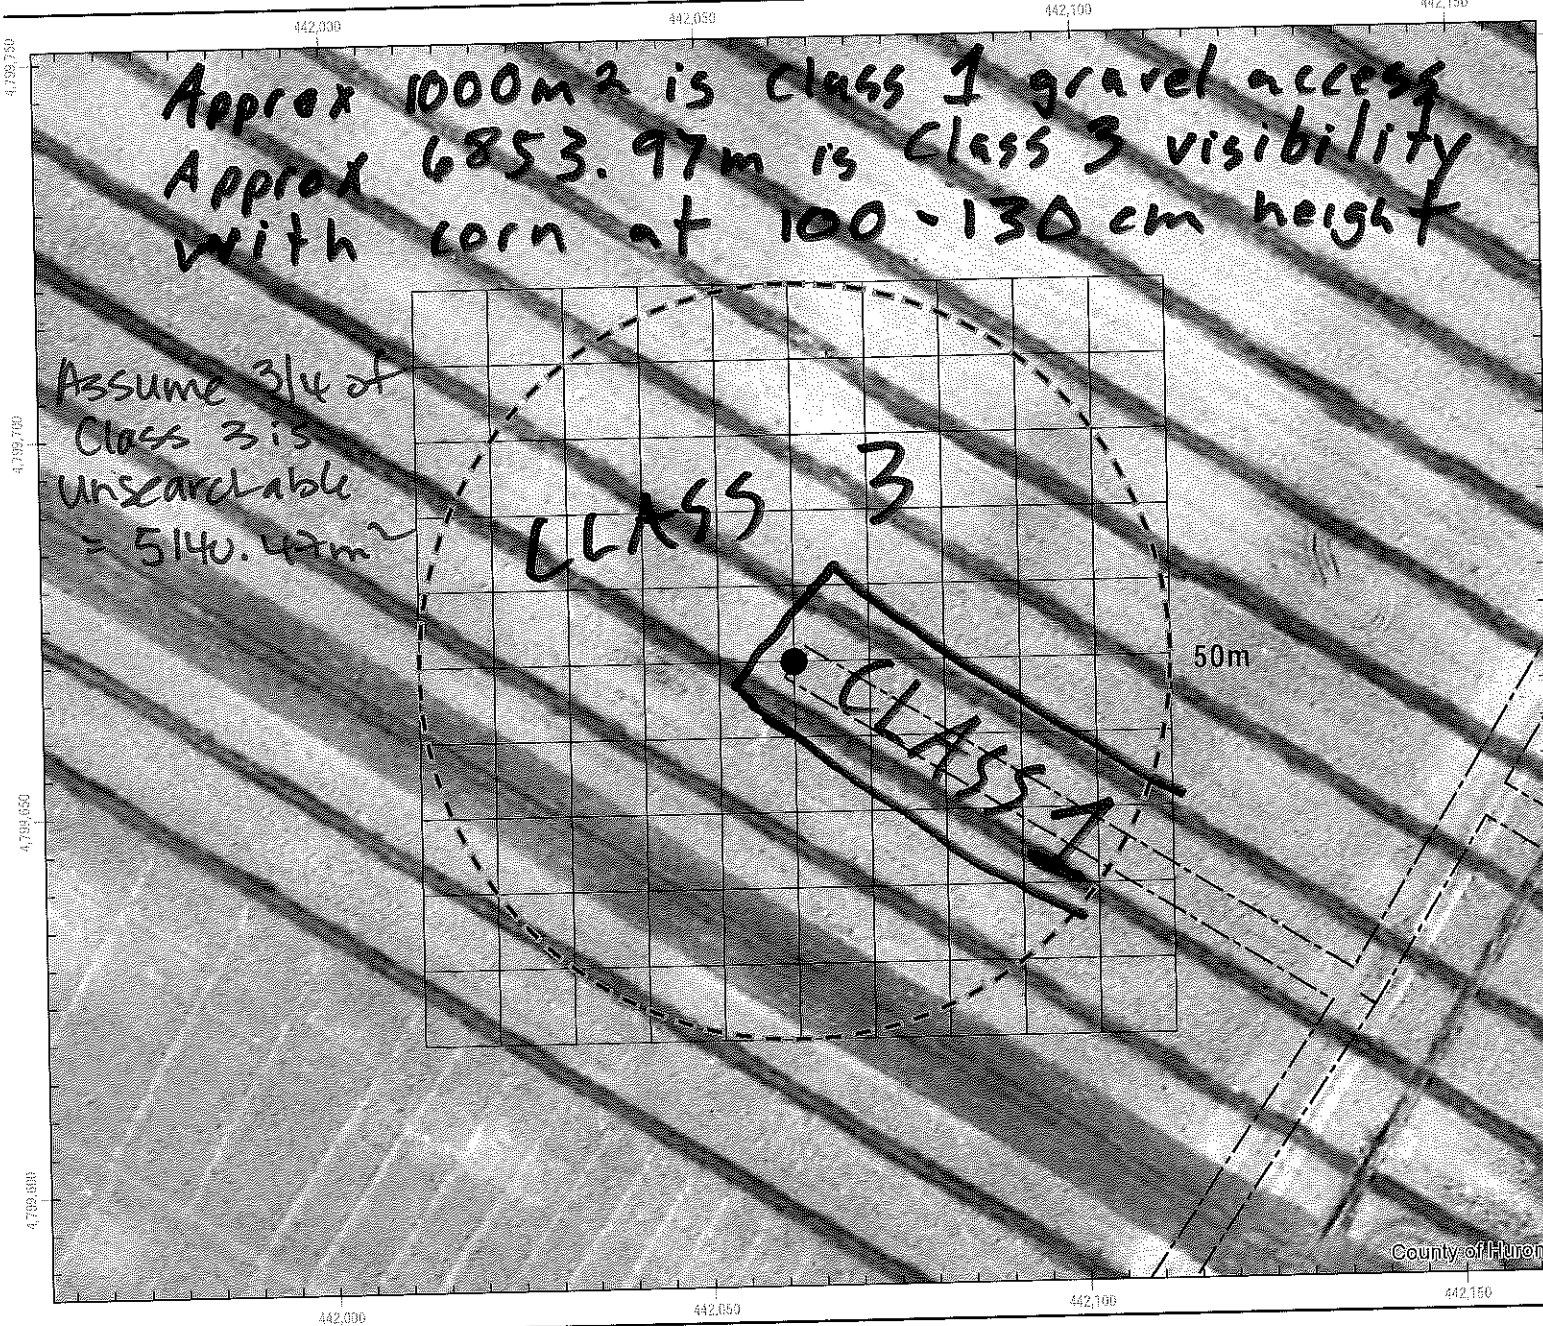 442,000
442,050
442,100
442,150
4,799,750
Apprex 1000m2 is Class 1 gravel access
Approx 6853.97m is Class 3 visibility
with corn at 100-130 cm height
Assume 3/4 of
Class 3 is
unsearchable
= 5140.47m2
4,799,700
CLASS 3
50m
CLASS 1
4,799,650
4,799,600
County of Huron
442,000
442,050
442,100
442,150